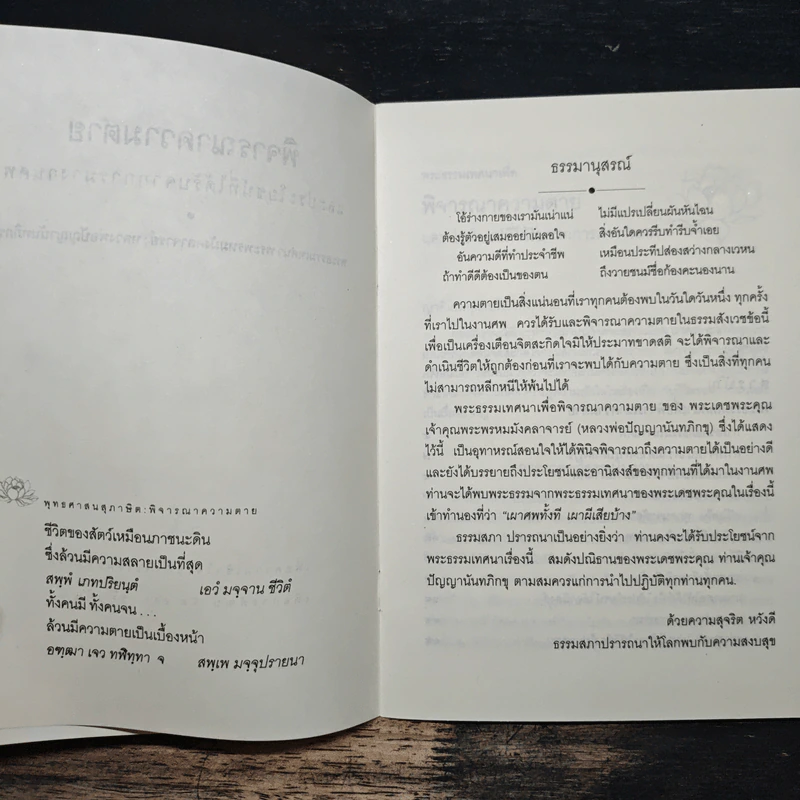 พุทธศาสนสุภาษิต:พิจารณาความตาย
ชีวิตของสัตว์เหมือนภาชนะดิน
ซึ่งล้วนมีความสลายเป็นที่สุด
สพฺพํ เภทปริยนฺตํ เอวํ มจฺจาน ชีวิตํ
ทั้งคนมี ทั้งคนจน . . .
ล้วนมีความตายเป็นเบื้องหน้า
อฑฺฒา เจว ทฬิทฺทา จ สพฺเพ มจฺจุปรายนา
ธรรมานุสรณ์
โอ้ร่างกายของเรามันเน่าแน่ ไม่มีแปรเปลี่ยนผันหันไฉน
ต้องรู้ตัวอยู่เสมออย่าเผลอใจ สิ่งอันใดควรรีบทำรีบจ้ำเอย
อันความดีที่ทำประจำชีพ เหมือนประทีปส่องสว่างกลางเวหน
ถ้าทำดีดีต้องเป็นของตน ถึงวายชนม์ชื่อก้องคะนองนาน
ความตายเป็นสิ่งแน่นอนที่เราทุกคนต้องพบในวันใดวันหนึ่ง ทุกครั้ง
ที่เราไปในงานศพ ควรได้รับและพิจารณาความตายในธรรมสังเวชข้อนี้
เพื่อเป็นเครื่องเตือนจิตสะกิดใจมิให้ประมาทขาดสติ จะได้พิจารณาและ
ดำเนินชีวิตให้ถูกต้องก่อนที่เราจะพบได้กับความตาย ซึ่งเป็นสิ่งที่ทุกคน
ไม่สามารถหลีกหนีให้พ้นไปได้
พระธรรมเทศนาเพื่อพิจารณาความตาย ของ พระเดชพระคุณ
เจ้าคุณพระพรหมมังคลาจารย์ (หลวงพ่อปัญญานันทภิกขุ) ซึ่งได้แสดง
ไว้นี้ เป็นอุทาหรณ์สอนใจให้ได้พินิจพิจารณาถึงความตายได้เป็นอย่างดี
และยังได้บรรยายถึงประโยชน์และอานิสงส์ของทุกท่านที่ได้มาในงานศพ
ท่านจะได้พบพระธรรมจากพระธรรมเทศนาของพระเดชพระคุณในเรื่องนี้
เข้าทำนองที่ว่า "เผาศพทั้งที เผาผีเสียบ้าง"
ธรรมสภา ปรารถนาเป็นอย่างยิ่งว่า ท่านคงจะได้รับประโยชน์จาก
พระธรรมเทศนาเรื่องนี้ สมดังปณิธานของพระเดชพระคุณ ท่านเจ้าคุณ
ปัญญานันทภิกขุ ตามสมควรแก่การนำไปปฏิบัติทุกท่านทุกคน.
ด้วยความสุจริต หวังดี
ธรรมสภาปรารถนาให้โลกพบกับความสงบสุข